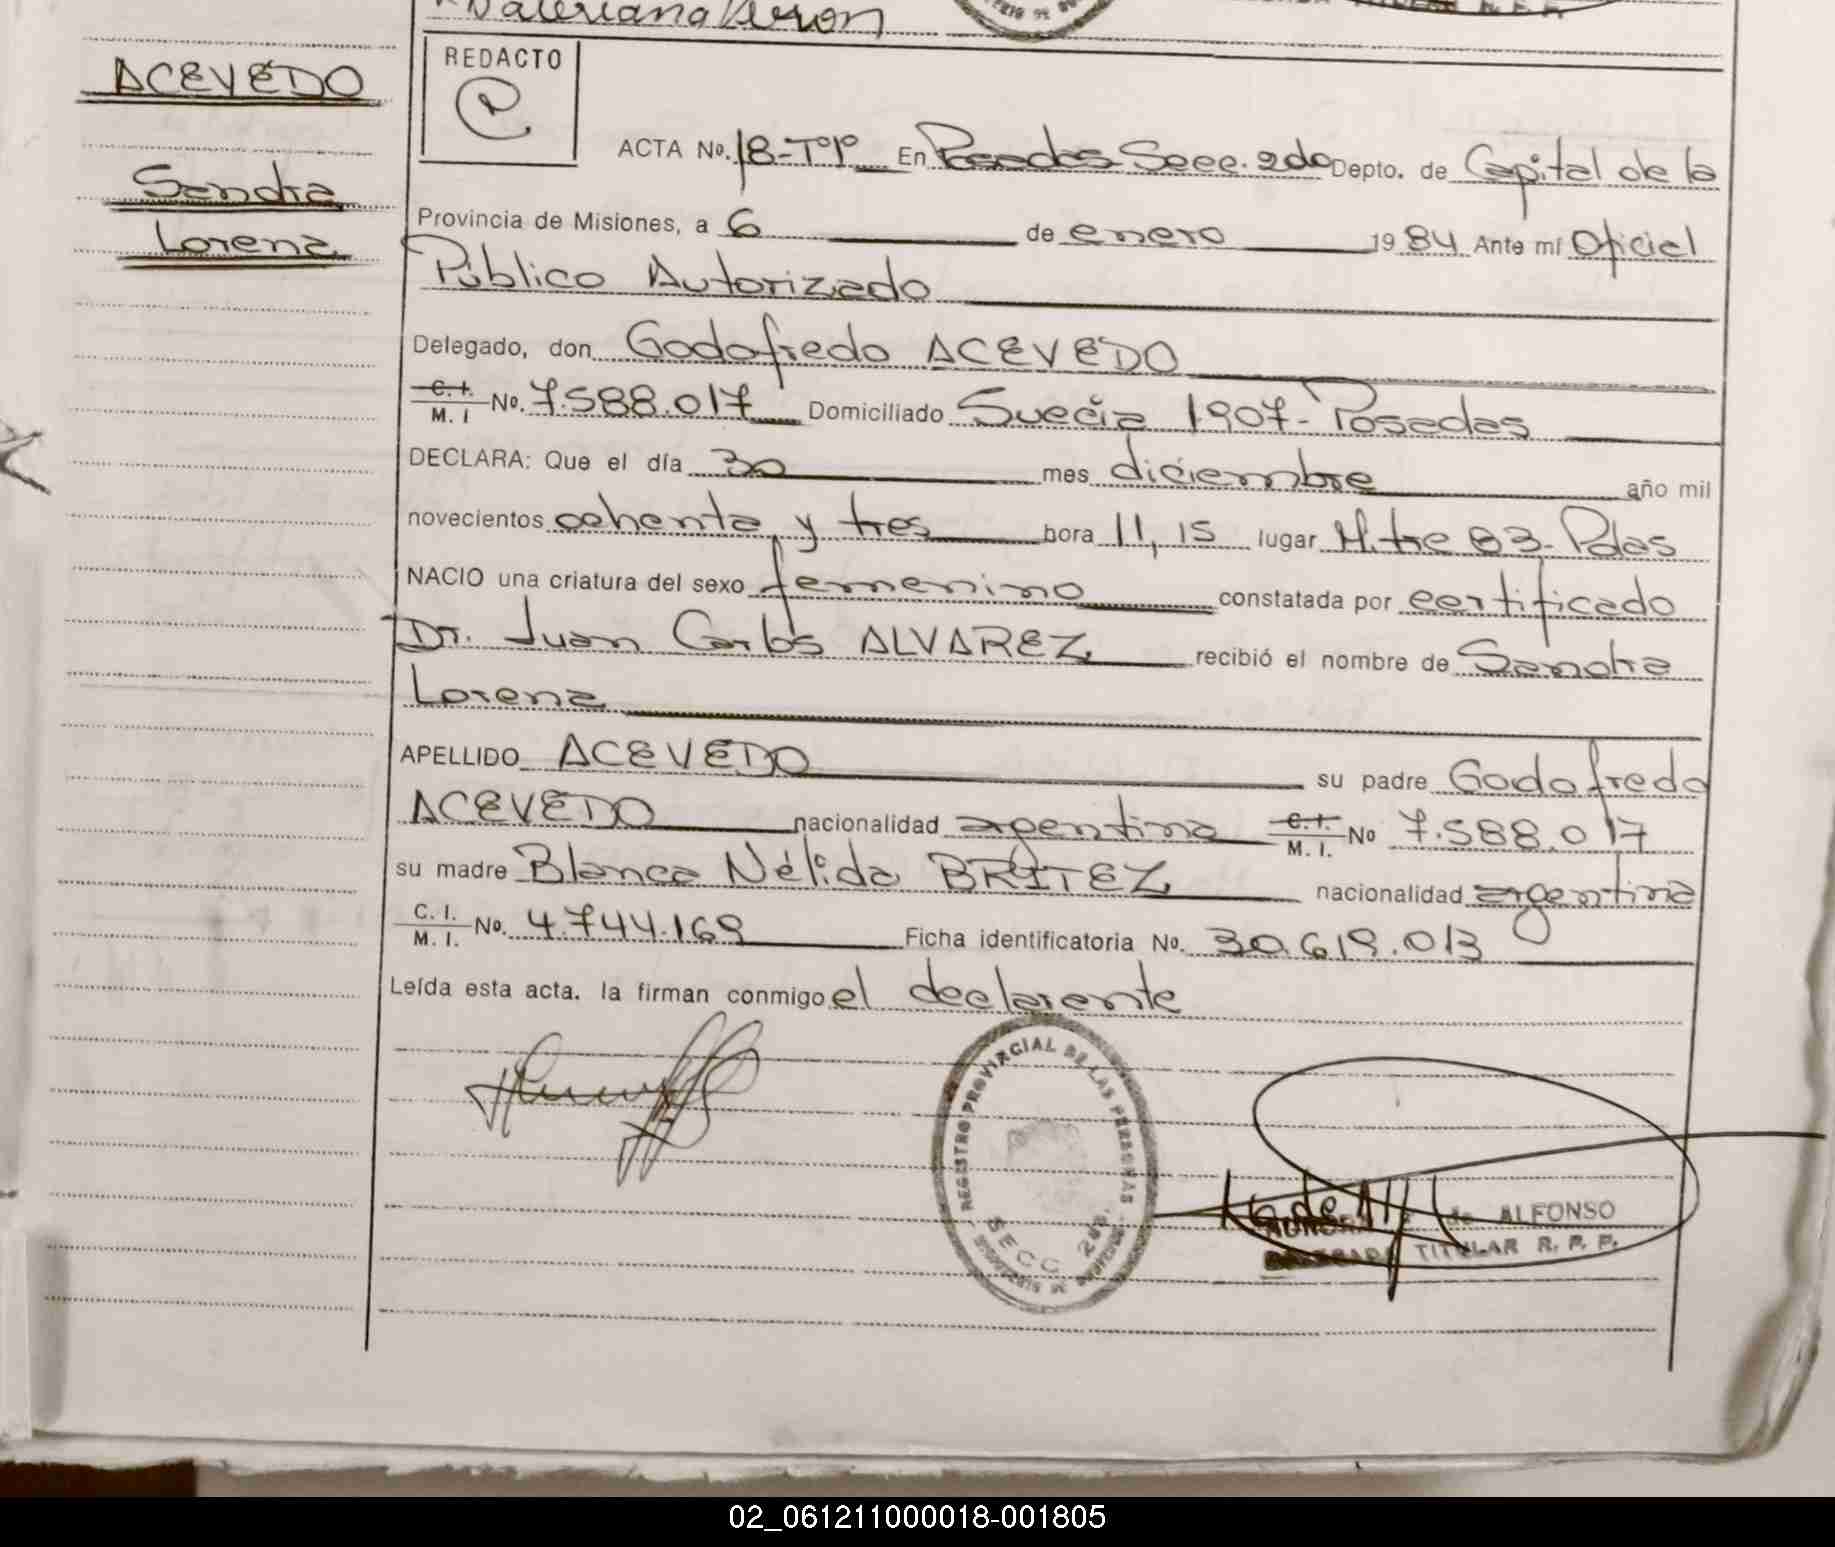 Valeriana Veron
ACEVEDO
Sandra
Lorena
REDACTO
ACTA No. 18-TºIº En Posadas Secc. 2da Depto. de Capital de la
Provincia de Misiones, a 6 de enero 1984 Ante mí Oficial
Público Autorizado
Delegado, don Godofredo ACEVEDO
C.I. M.I No. 7.588.017 Domiciliado Suecia 1907- Posadas
DECLARA: Que el día 30 mes diciembre año mil
novecientos ochenta y tres hora 11,15 lugar Mitre 83- Pdas
NACIO una criatura del sexo femenino constatada por certificado
Dr. Juan Carlos ALVAREZ recibió el nombre de Sandra
Lorena
APELLIDO ACEVEDO su padre Godofredo
ACEVEDO nacionalidad argentina C.I. M.I. No 7.588.017
su madre Blanca Nélida BRITEZ nacionalidad argentina
C.I. M.I. No. 4.744.169 Ficha identificatoria No. 30.619.013
Leída esta acta. la firman conmigo el declarante
REGISTRO PROVINCIAL DE LAS PERSONAS
SECC. 2da.
de ALFONSO
TITULAR R. P. P.
02_061211000018-001805